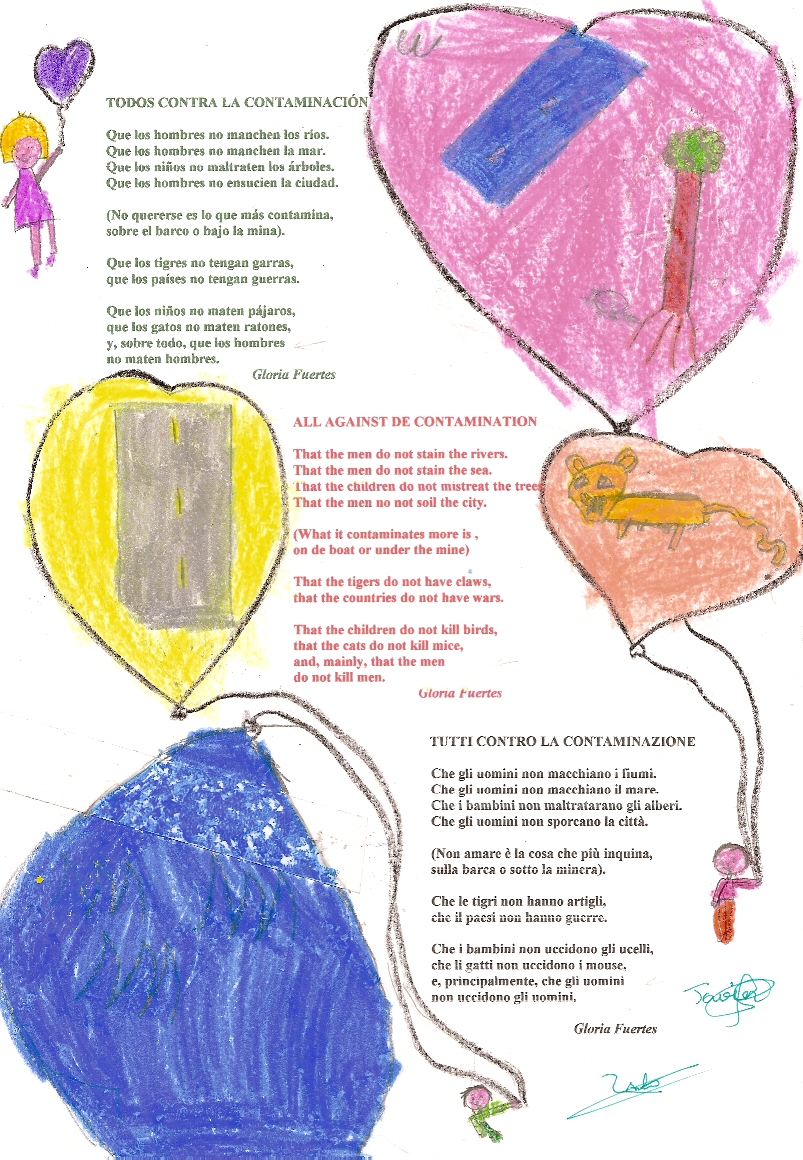 TODOS CONTRA LA CONTAMINACIÓN
Que los hombres no manchen los ríos.
Que los hombres no manchen la mar.
Que los niños no maltraten los árboles.
Que los hombres no ensucien la ciudad.
(No quererse es lo que más contamina,
sobre el barco o bajo la mina).
Que los tigres no tengan garras,
que los países no tengan guerras.
Que los niños no maten pájaros,
que los gatos no maten ratones,
y, sobre todo, que los hombres
no maten hombres.
Gloria Fuertes
ALL AGAINST DE CONTAMINATION
That the men do not stain the rivers.
That the men do not stain the sea.
That the children do not mistreat the trees
That the men no not soil the city.
(What it contaminates more is ,
on de boat or under the mine)
That the tigers do not have claws,
that the countries do not have wars.
That the children do not kill birds,
that the cats do not kill mice,
and, mainly, that the men
do not kill men.
Gloria Fuertes
TUTTI CONTRO LA CONTAMINAZIONE
Che gli uomini non macchiano i fiumi.
Che gli uomini non macchiano il mare.
Che i bambini non maltratarano gli alberi.
Che gli uomini non sporcano la città.
(Non amare è la cosa che più inquina,
sulla barca o sotto la minera).
Che le tigri non hanno artigli,
che il paesi non hanno guerre.
Che i bambini non uccidono gli ucelli,
che li gatti non uccidono i mouse,
e, principalmente, che gli uomini
non uccidono gli uomini,
Gloria Fuertes